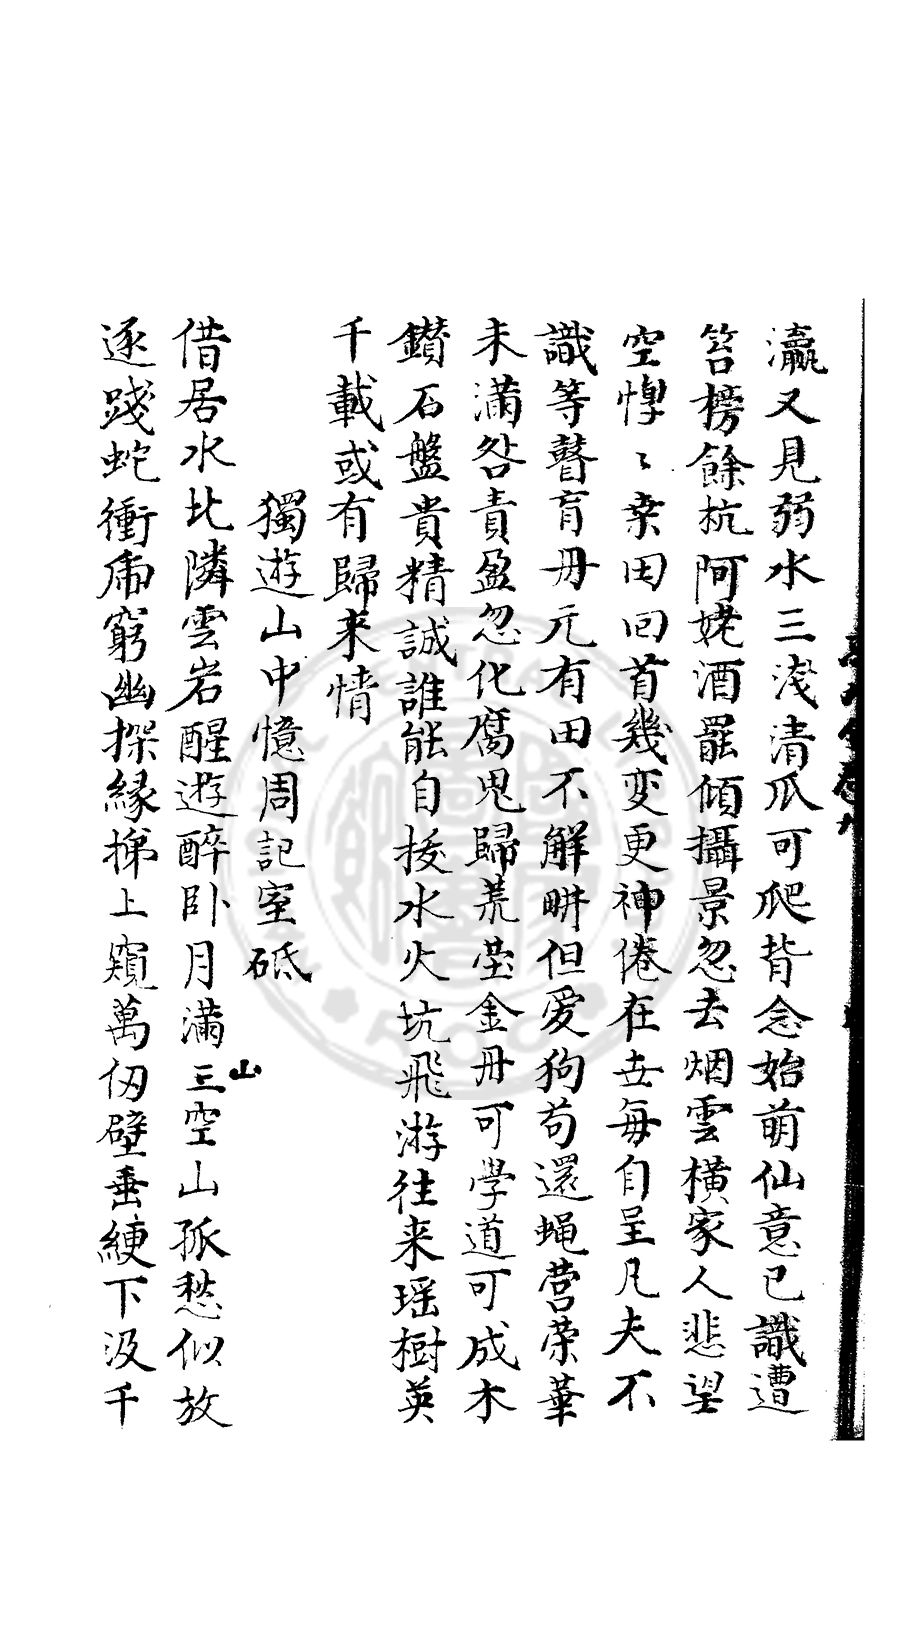 瀛又見弱水三淺清爪可爬背念始萌仙意已識遭
笞榜餘杭阿姥酒罷傾攝景忽去烟雲橫家人悲望
空惸〻桒田回首幾变更神倦在世每自呈凡夫不
識等瞽盲毋元有田不解畊但爱狗苟還蝇营荣華
未满咎責盈忽化腐鬼歸荒塋金丹可學道可成木
鑚石盤貴精誠誰能自拔水火坑飛游往来瑶樹英
千載或有歸来情
獨遊山中憶周記室砥
借居水北隣雲岩醒遊醉卧月满三山空山孤愁似放
逐踐蛇衝虎窮幽探緣梯上窺萬仭壁垂綆下汲千